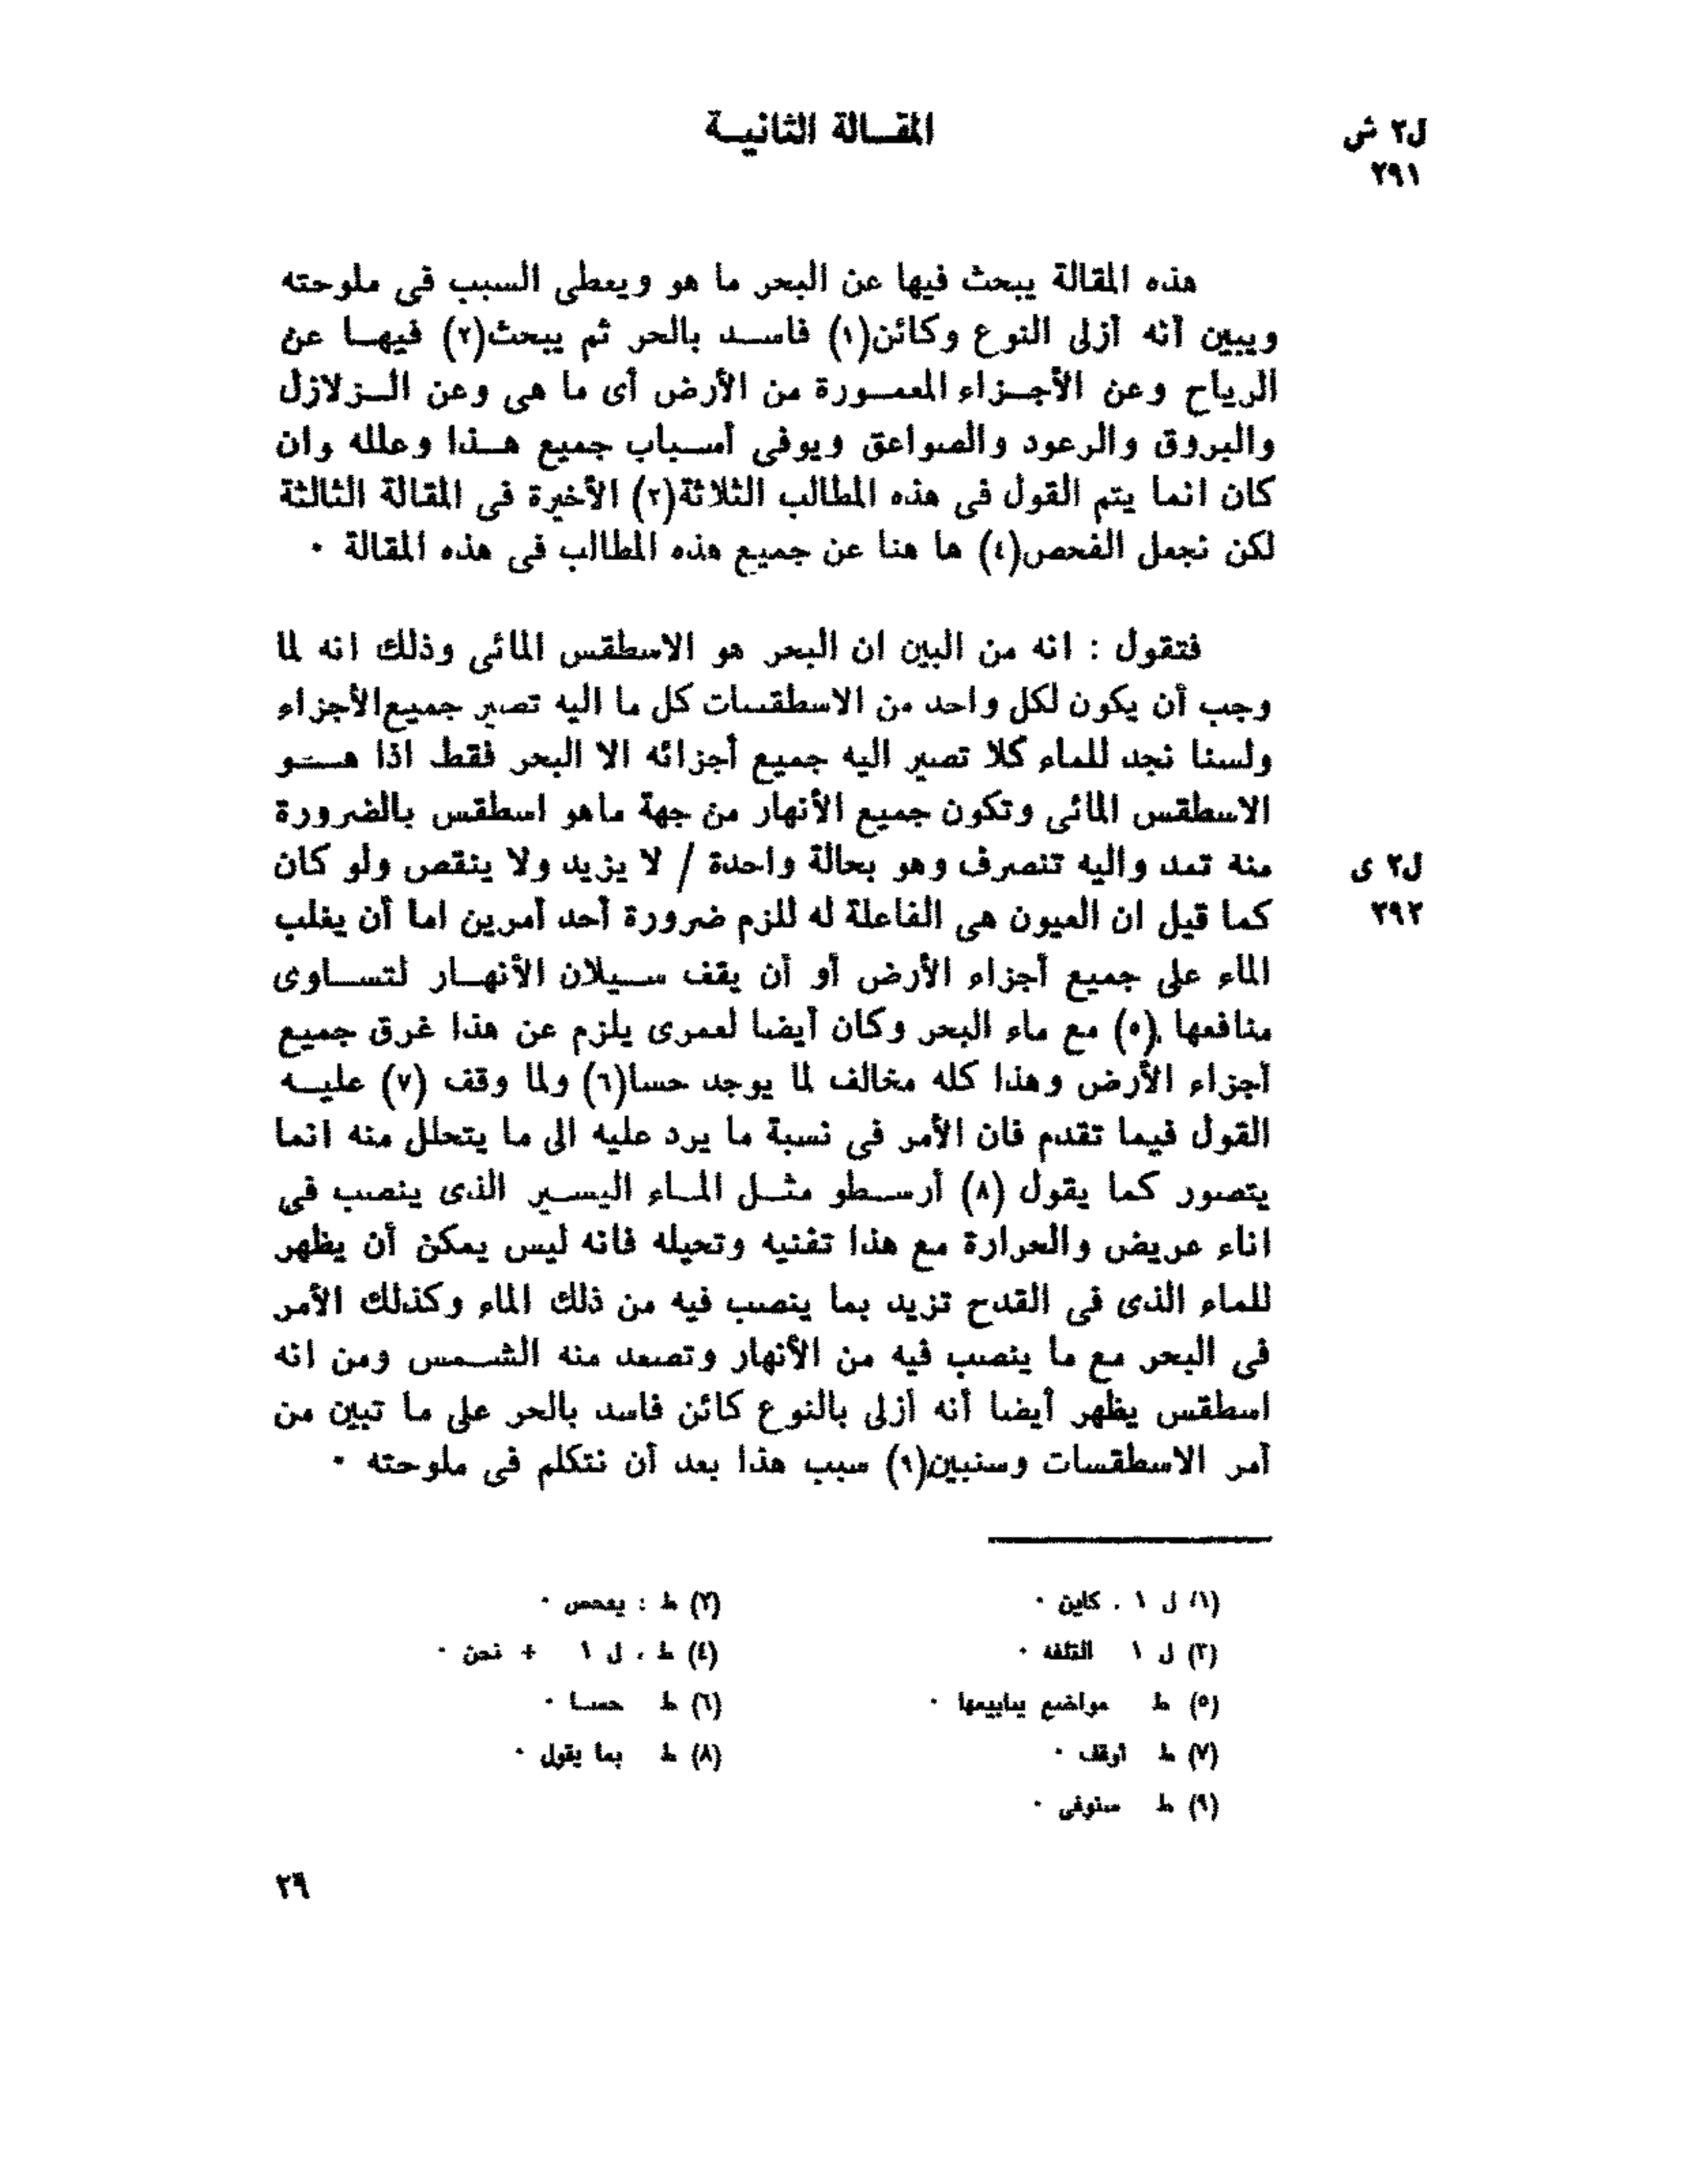 ل٢ ش
٢٩١
المقالة الثانية
هذه المقالة يبحث فيها عن البحر ما هو ويعطى السبب فى ملوحته
ويبين أنه أزلى النوع وكائن(١) فاسد بالحر ثم يبحث(٢) فيها عن
الرياح وعن الأجزاء المعمورة من الأرض أى ما هى وعن الزلازل
والبروق والرعود والصواعق ويوفى أسباب جميع هذا وعلله وان
كان انما يتم القول فى هذه المطالب الثلاثة(٣) الأخيرة فى المقالة الثالثة
لكن نجعل الفحص(٤) ها هنا عن جميع هذه المطالب فى هذه المقالة ٠
فتقول : انه من البين ان البحر هو الاسطقس المائى وذلك انه لما
وجب أن يكون لكل واحد من الاسطقسات كل ما اليه تصير جميع الأجزاء
ولسنا نجد للماء كلا تصير اليه جميع أجزائه الا البحر فقط اذا هو
الاسطقس المائى وتكون جميع الأنهار من جهة ماهو اسطقس بالضرورة
منه تمد واليه تنصرف وهو بحالة واحدة / لا يزيد ولا ينقص ولو كان
ل٢ ى
٢٩٢
كما قيل ان العيون هى الفاعلة له للزم ضرورة أحد أمرين اما أن يغلب
الماء على جميع أجزاء الأرض أو أن يقف سيلان الأنهار لتساوى
منافعها (٥) مع ماء البحر وكان أيضا لعمرى يلزم عن هذا غرق جميع
أجزاء الأرض وهذا كله مخالف لما يوجد حسا(٦) ولما وقف (٧) عليه
القول فيما تقدم فان الأمر فى نسبة ما يرد عليه الى ما يتحلل منه انما
يتصور كما يقول (٨) أرسطو مثل الماء اليسير الذى ينصب فى
اناء عريض والحرارة مع هذا تفنيه وتحيله فانه ليس يمكن أن يظهر
للماء الذى فى القدح تزيد بما ينصب فيه من ذلك الماء وكذلك الأمر
فى البحر مع ما ينصب فيه من الأنهار وتصعد منه الشمس ومن انه
اسطقس يظهر أيضا أنه أزلى بالنوع كائن فاسد بالحر على ما تبين من
أمر الاسطقسات وسنبين(٩) سبب هذا بعد أن نتكلم فى ملوحته ٠
(١) ل ١ . كاين ٠
(٢) ط : يفحص ٠
(٣) ل ١ الثلثة ٠
(٤) ط ، ل ١ + نحن ٠
(٥) ط مواضع ينابيعها ٠
(٦) ط حسا ٠
(٧) ط أوقف ٠
(٨) ط بما يقول ٠
(٩) ط سنوفى ٠
٢٩